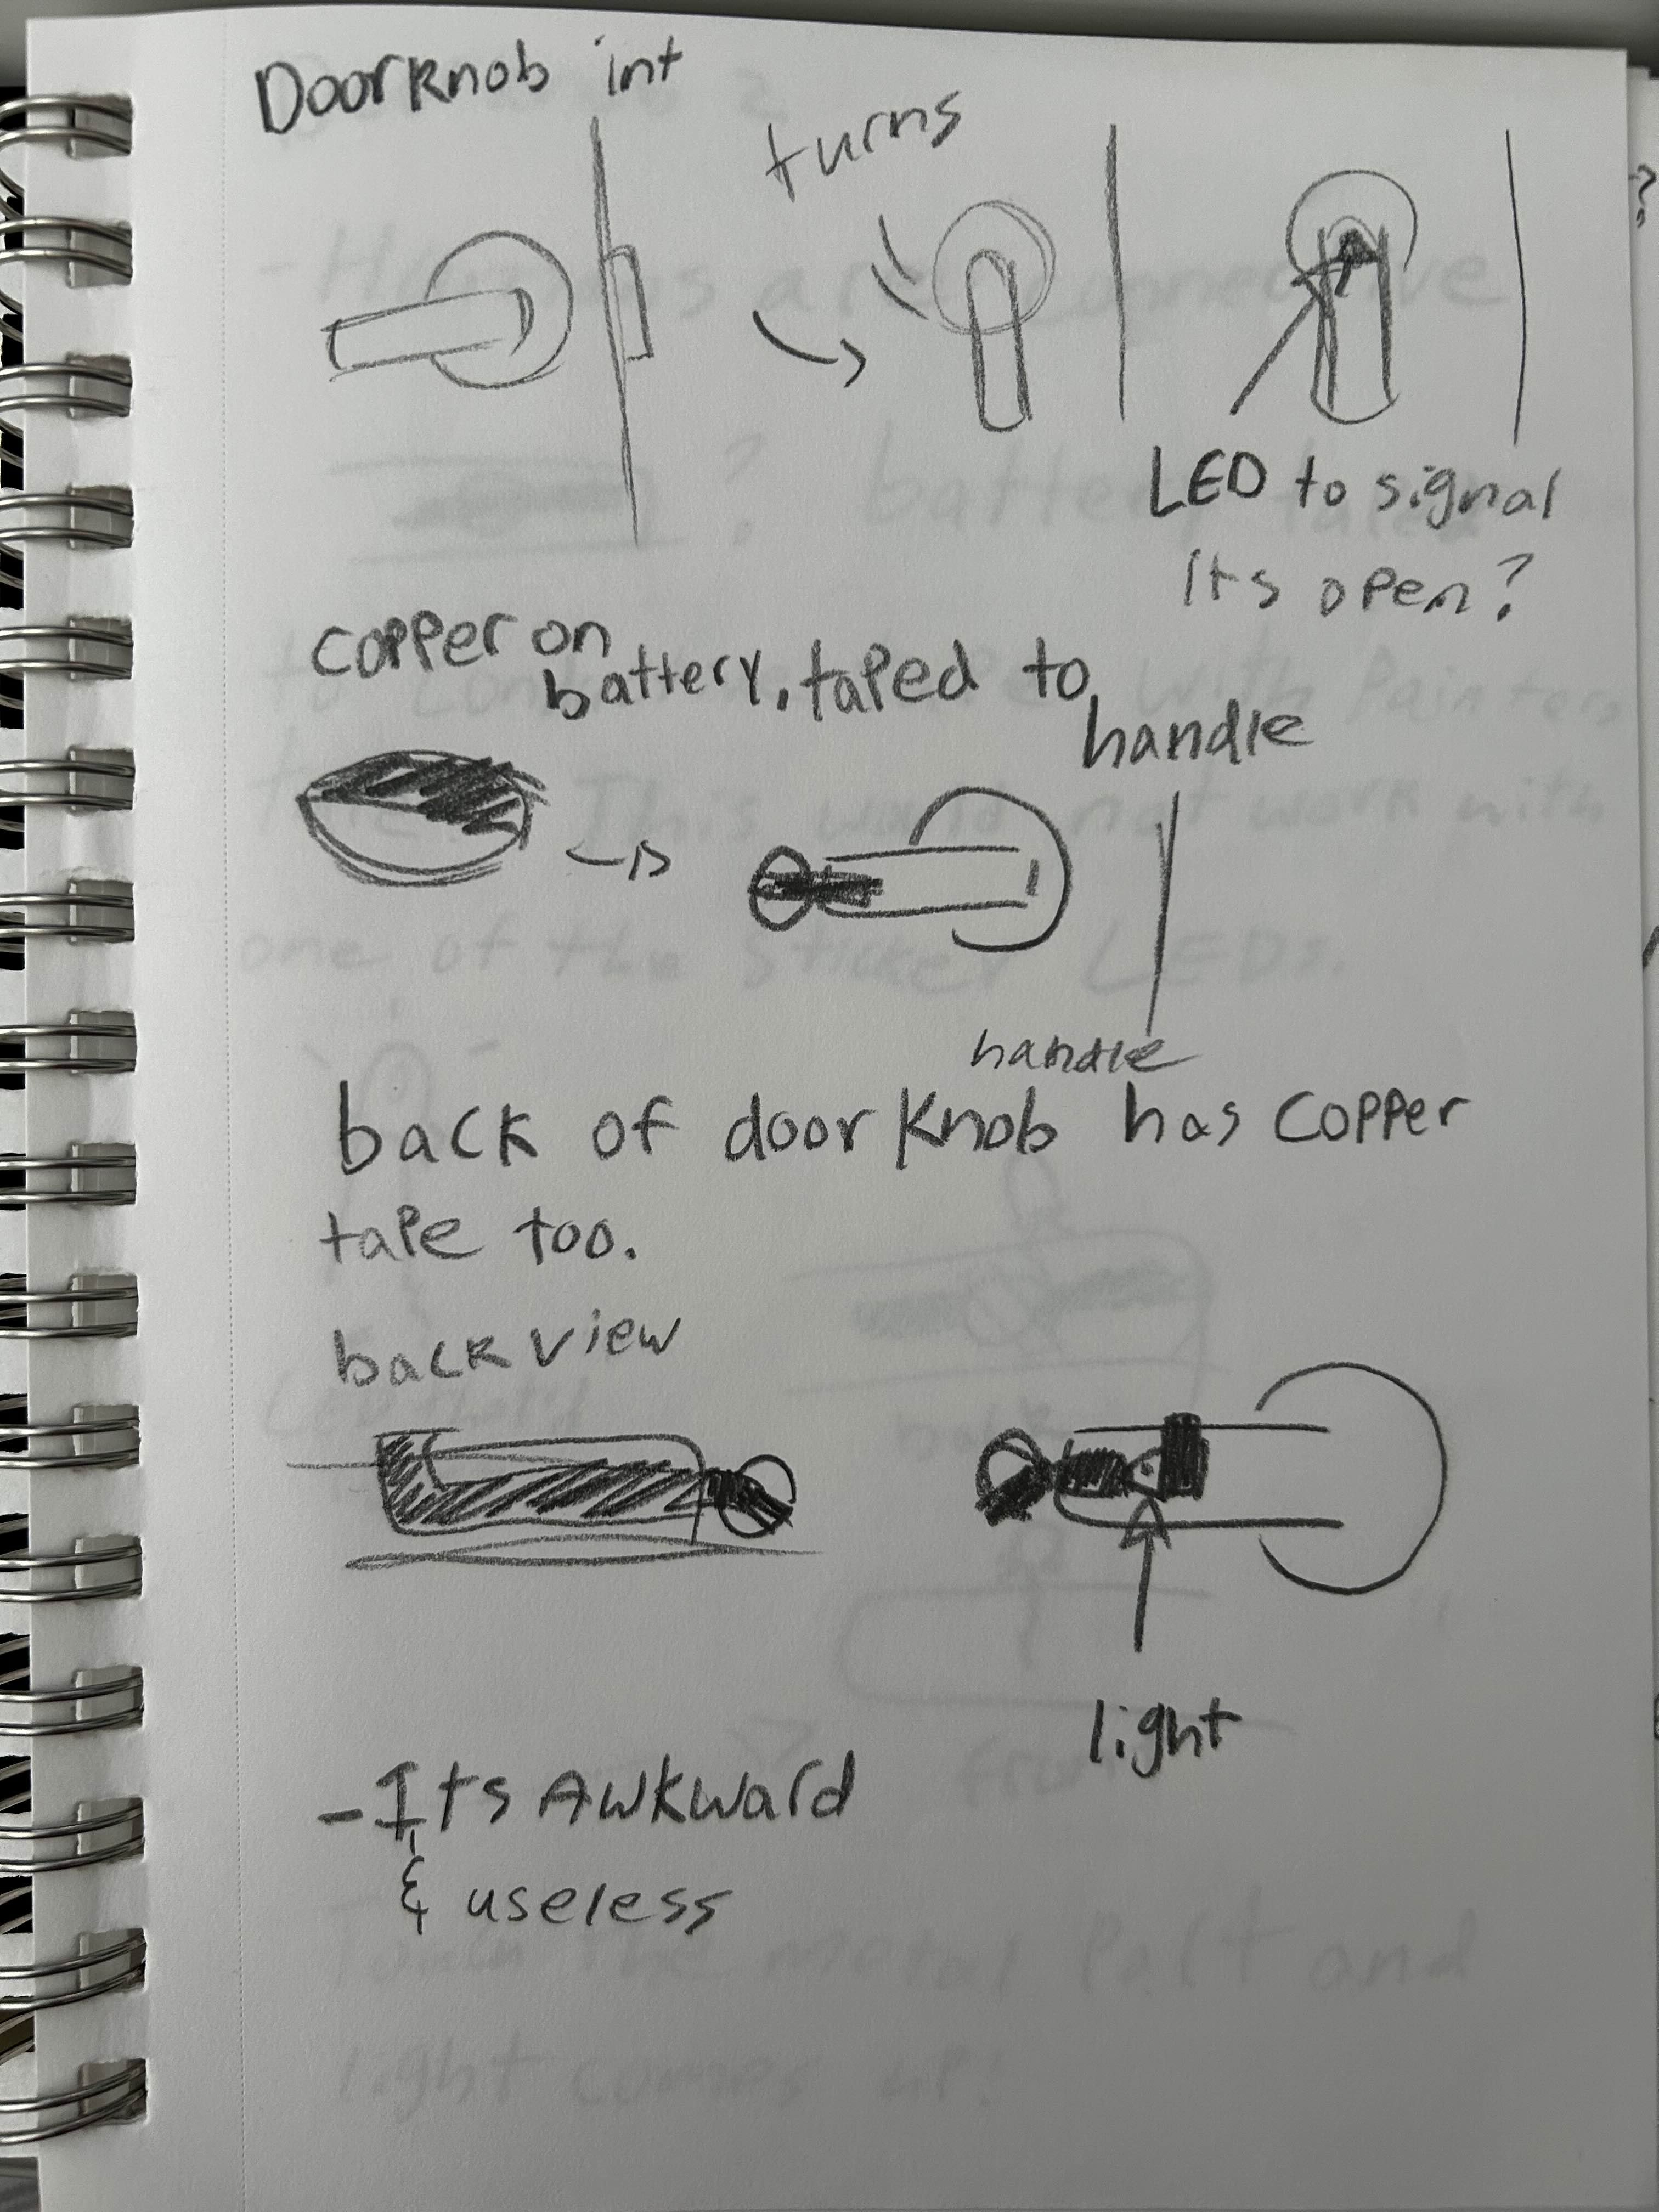 Doorknob int
turns
LED to signal
Its open?
copper on
battery, taped to
handle
handle
back of door knob has copper
tape too.
back view
light
- Its Awkward
& useless